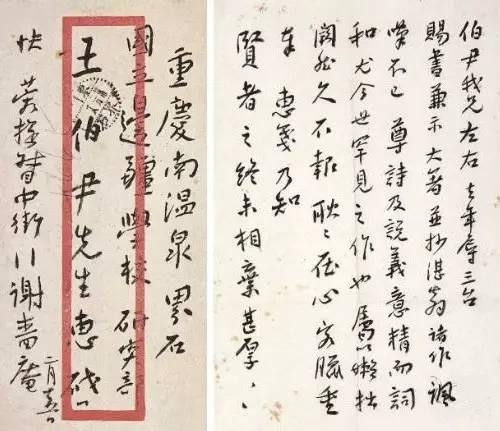 重慶南温泉界石
國立邊疆學校研究部
王伯尹先生惠啟
快 樂揚育中街八謝嗇庵
伯尹我兄左右去年辱三台
賜書兼示大著並抄湛翁諸作諷
嘆不已尊詩及說義意精而詞
和尤今世罕見之作也屬以嬾拙
闕然久不報耿耿在心客臘垂
奉惠箋乃知
賢者之終未相棄甚厚、、